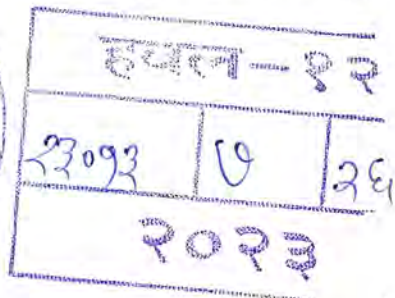 हवल-१२
२३०१३ ७ २६
२०२३